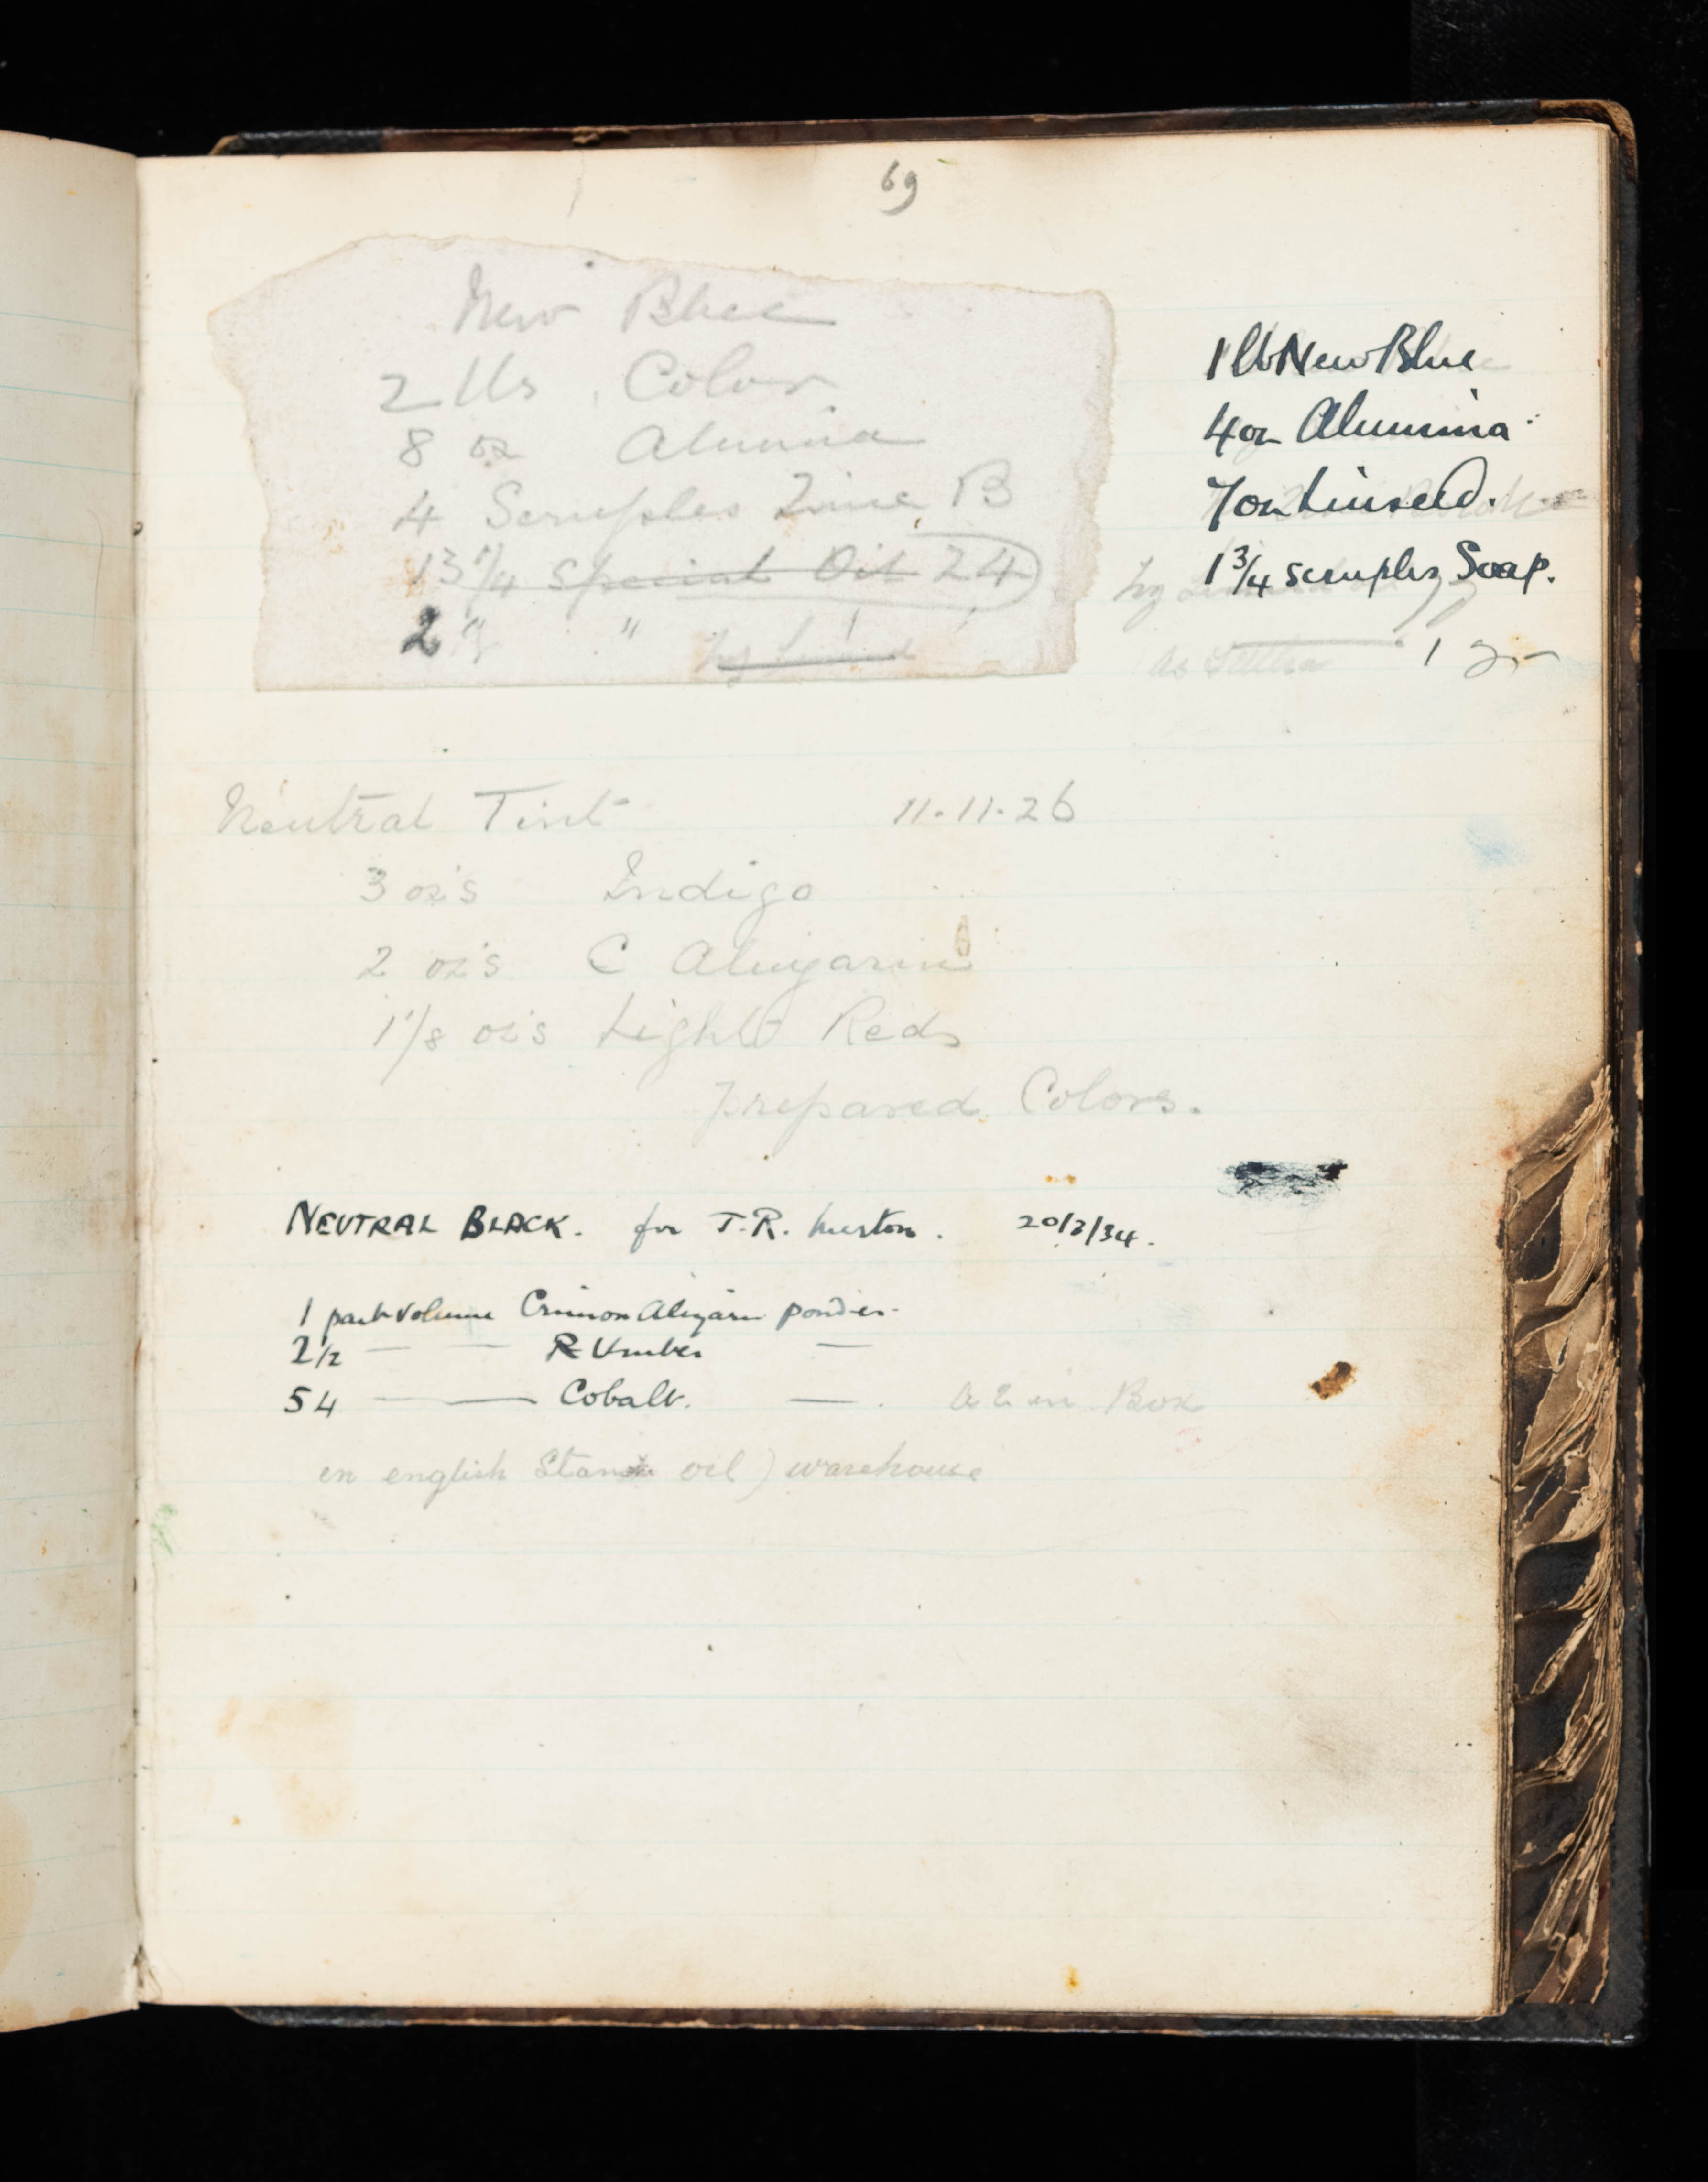 69
New Blue
2 lbs Color
8 oz Alumina
4 Scruples Zinc B
13 1/4 Special Oil 24
2 " "
1 lb New Blue
4 oz Alumina
7 oz Linseed.
1 3/4 scruples Soap.
1
Neutral Tint 11-11-26
3 oz's Indigo
2 oz's C Alizarin
1 1/8 oz's Light Reds
Prepared Colors.
NEUTRAL BLACK. for T.R. 20/3/34.
1 part volume Crimson Alizarin powder
2 1/2 — — R Umber —
54 — — Cobalt. — . in Box
in english Stand oil) warehouse